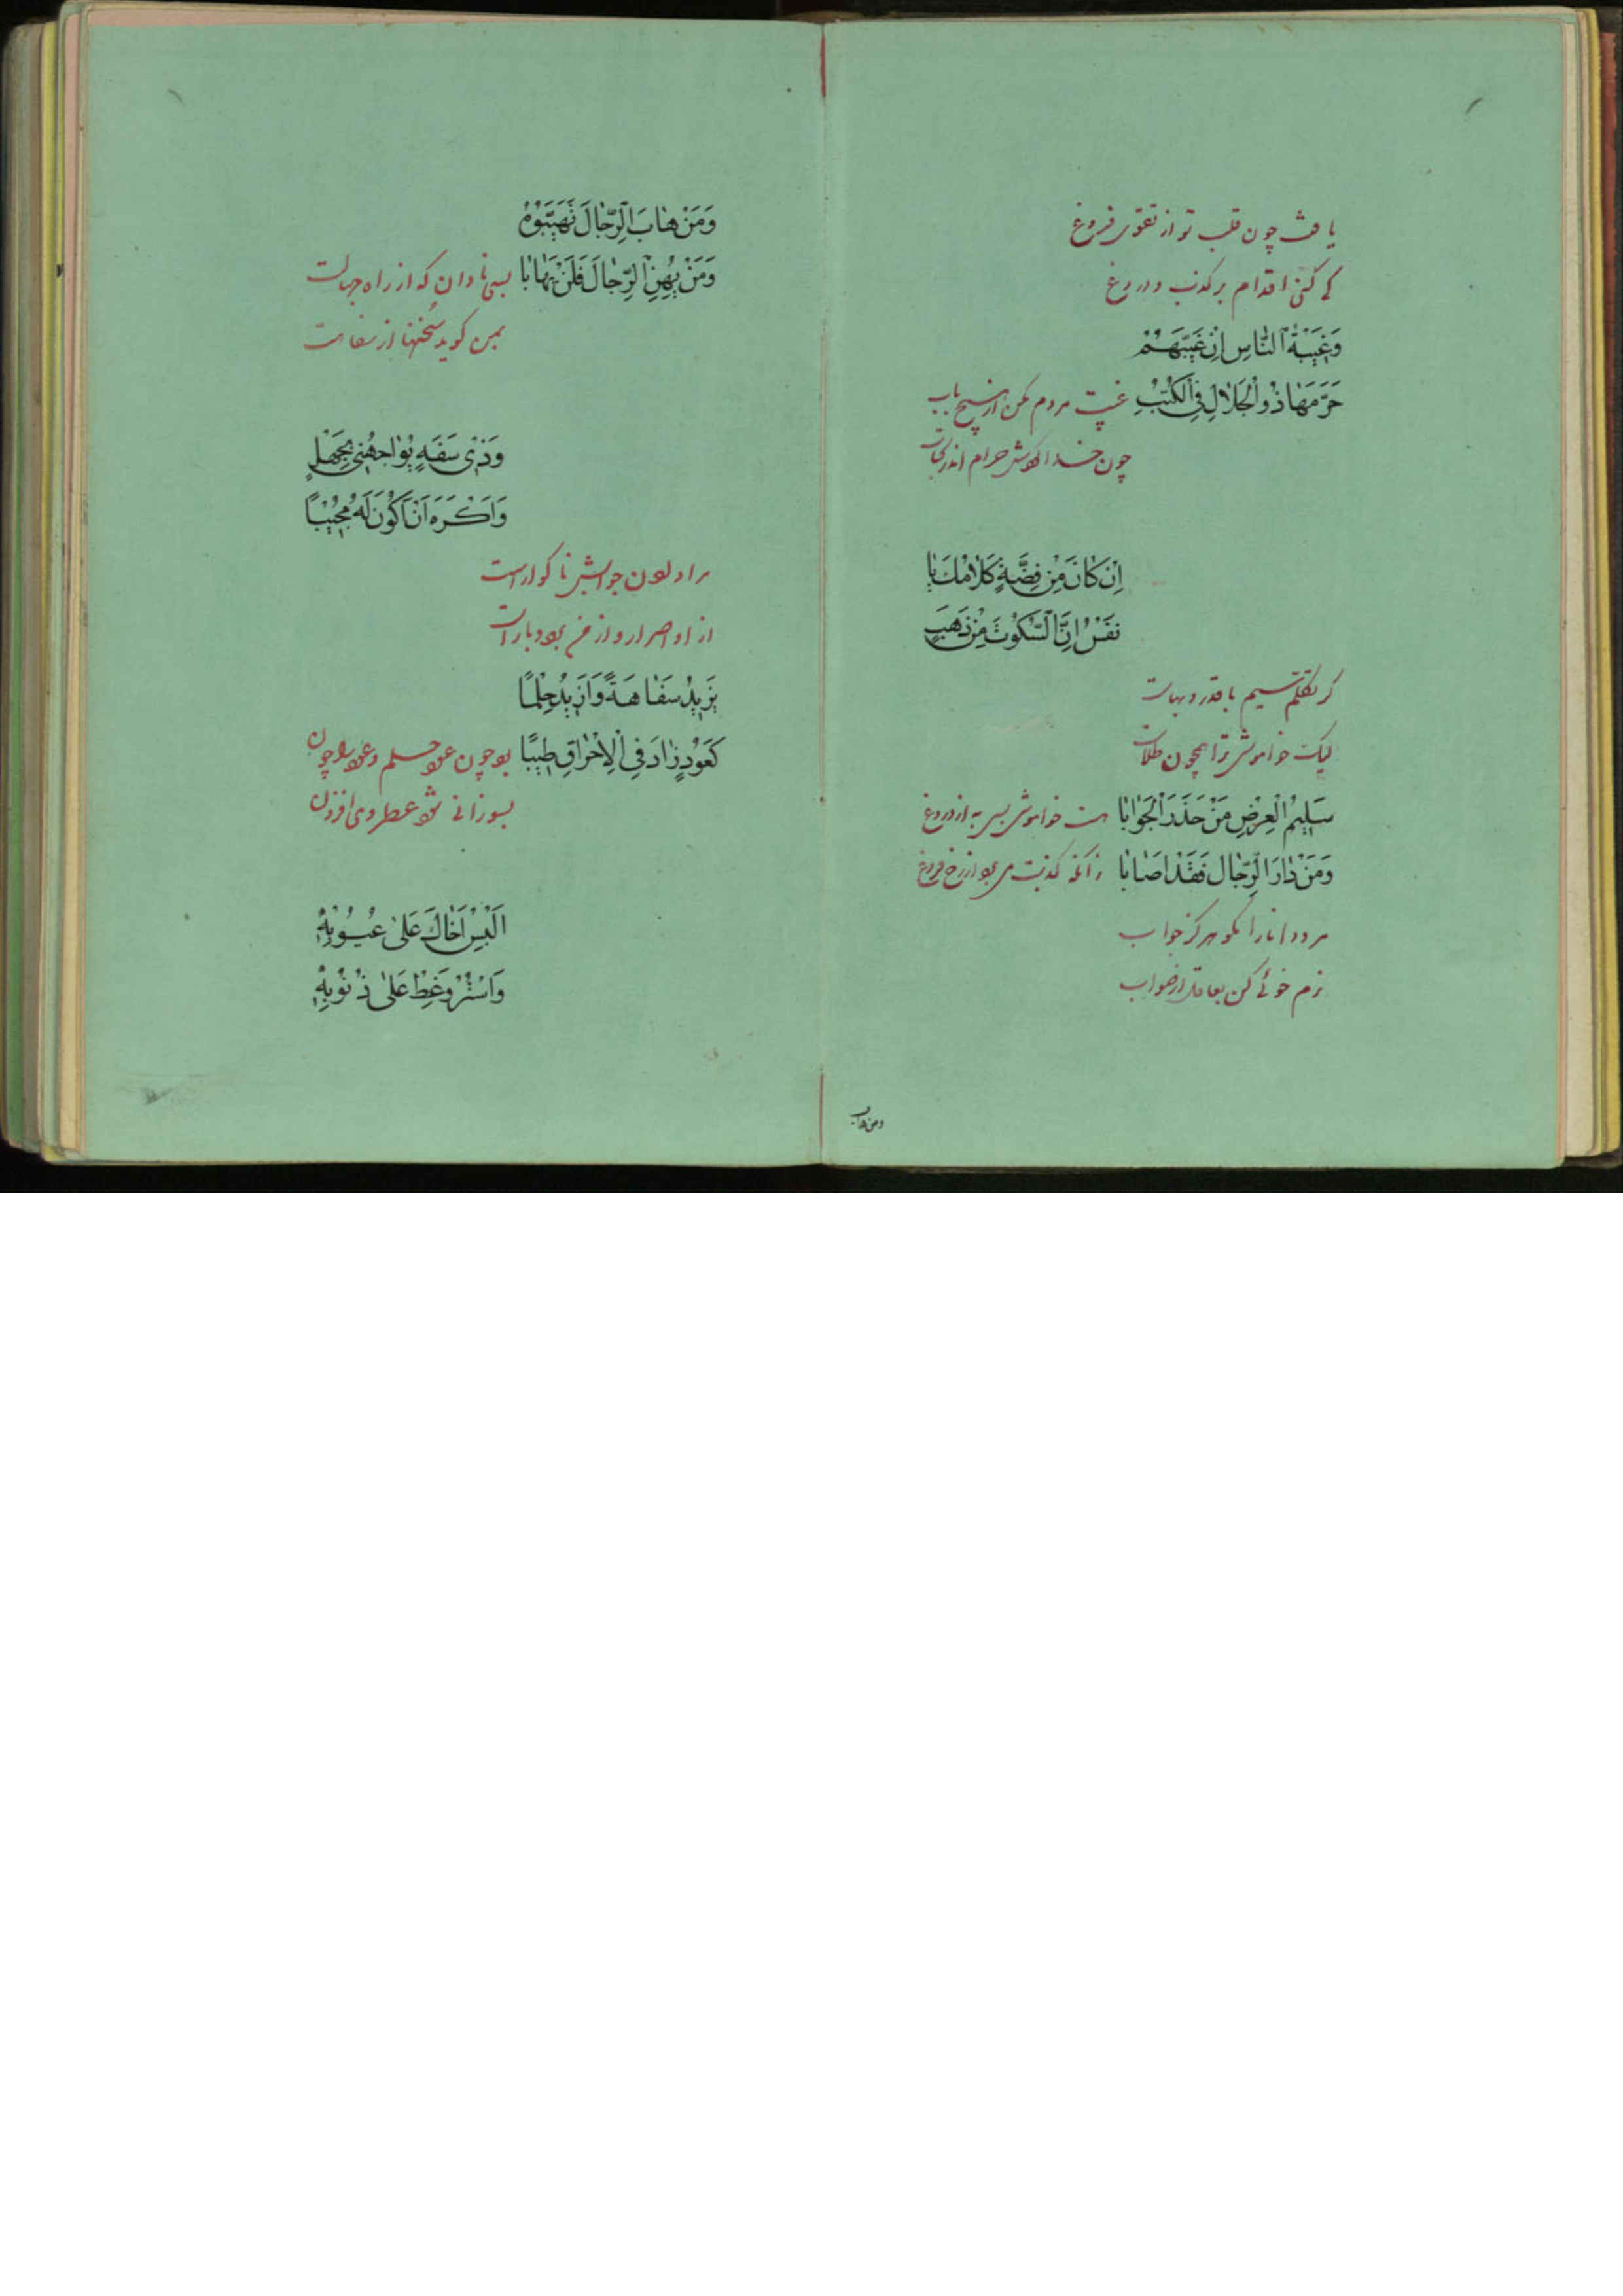 یافت چون قلب تو از تقوی فروغ
کی کنی اقدام بر کذب و دروغ
وَغَيْبَةُ النَّاسِ اِنَّ غَيْبَتَهُمْ
حَرَّمَهَا ذُو الْجَلَالِ فِي الْكُتُبِ
غیبت مردم مکن از هیچ باب
چون خدا کردش حرام اندر کتاب
اِنْ كَانَ مِنْ فِضَّةٍ كَلَامُكَ يَا
نَفْسُ اِنَّ السُّكُوتَ مِنْ ذَهَبٍ
گر تکلم سیم با قدر و بهاست
لیک خاموشی ترا همچون طلاست
سَلِيمُ الْعِرْضِ مَنْ حَذَرَ الْجَوَابَا
وَمَنْ دَارَ الرِّجَالَ فَقَدْ اَصَابَا
هست خواموشی بسی به از دروغ
زانکه کذبت می برد از رخ فروغ
مرد دانا را مگو هرگز جواب
نرم خوئی کن بعاقل از صواب
ومن هاب
وَمَنْ هَابَ الرِّجَالَ تَهَيَّبُوهُ
وَمَنْ يُهِنِ الرِّجَالَ فَلَنْ يُهَابَا
بسی نادان که از راه جهالت
بمن گوید سُخنها از سفاهت
وَذِي سَفَهٍ يُوَاجِهُنِي بِجَهْلٍ
وَاَكْرَهُ اَنْ اَكُونَ لَهُ مُجِيبًا
مرا دادن جوابش ناگوار است
از او اصرار و از من بردبار است
يَزِيدُ سَفَاهَةً وَاَزِيدُ حِلْمًا
كَعُودٍ زَادَ فِي الْاِحْرَاقِ طِيبًا
بود چون عود حلم و عود را چون
بسوزانی شود عطر وی افزون
اَلْبِسْ اَخَاكَ عَلَى عُيُوبِهِ
وَاسْتُرْ وَغَطِّ عَلَى ذُنُوبِهِ